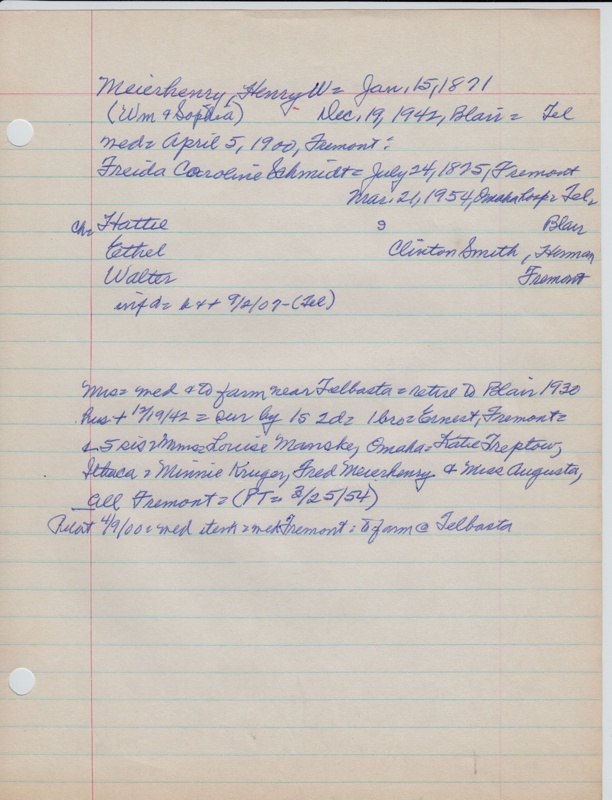 Meierhenry, Henry W= Jan. 15, 1871
(Wm & Sophia) Dec. 19, 1942, Blair = Tel
med= April 5, 1900, Fremont:
Freida Caroline Schmidt= July 24, 1875, Fremont
Mar. 21, 1954, Omaha hosp= Tel.
ch= Hattie 9 Blair
Ethel Clinton Smith, Herman
Walter Fremont
inf d= b & + 9/2/07-(Tel)
Mrs= med & to farm near Telbasta= retire to Blair 1930
Hus + 12/19/42 = sur by 1s 2d= 1 bro= Ernest, Fremont=
& 5 sis= Mmes= Louise Manske, Omaha= Katie Treptow,
Ithaca= Minnie Kruger, Fred Meierhenry & Miss Augusta,
all Fremont= (PT= 3/25/54)
Pilot 4/9/00= med item= wek Fremont= to farm @ Telbasta